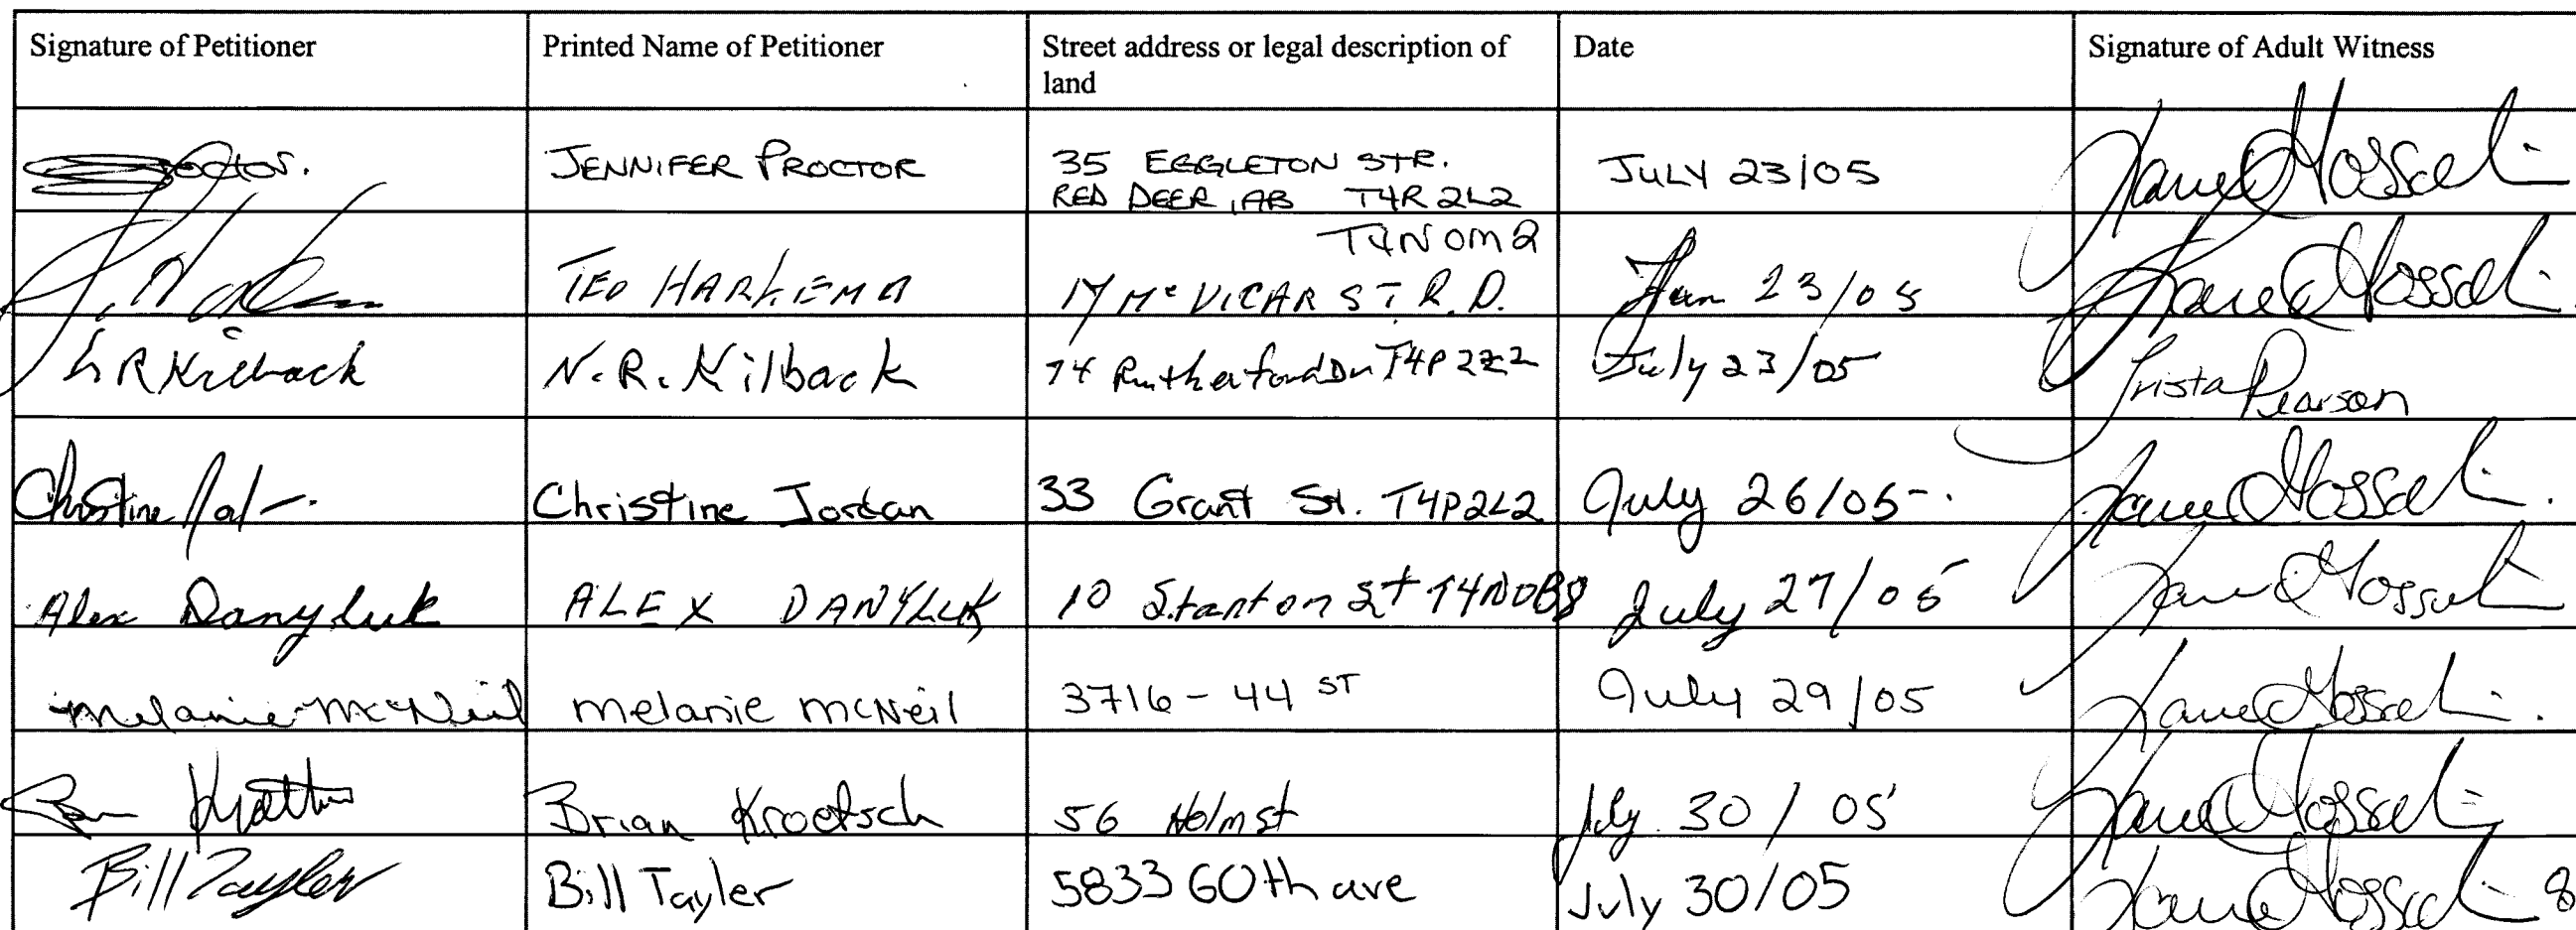 Signature of Petitioner Printed Name of Petitioner Street address or legal description of land Date Signature of Adult Witness
JENNIFER PROCTOR 35 EGGLETON STR. RED DEER, AB T4R 2L2 JULY 23/05
TED HARKEMA 17 McVICAR ST R.D. T4N 0M2 23/05
R Kilback N.R. Kilback 74 Rutherford Dr T4P 2Z2 July 23/05 Trista Pearson
Christine Christine Jordan 33 Grant St. T4P2L2 July 26/05
Alex Danyluk ALEX DANYLUK 10 Stanton St T4N0B8 July 27/05
Melanie McNeil melanie mcNeil 3716-44 ST July 29/05
Brian Kroetsch 56 Holm st July 30/05
Bill Tayler Bill Tayler 5833 60th ave July 30/05 8